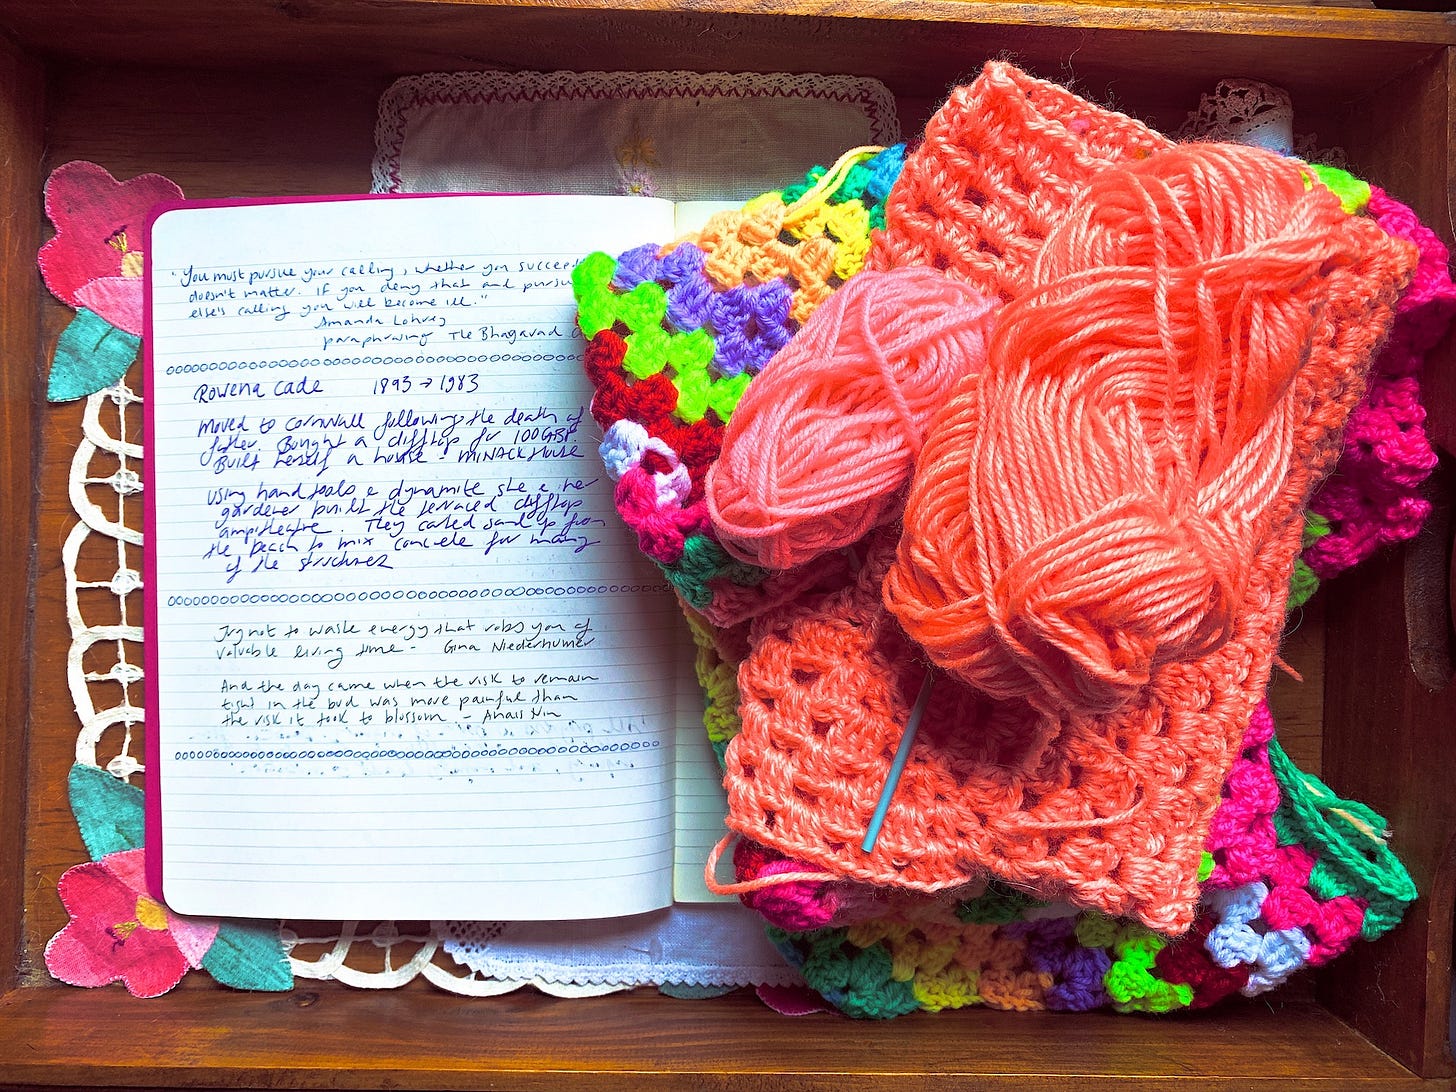 "You must pursue your calling, whether you succeed
doesn't matter. If you deny that and pursue
else's calling you will become ill."
Amanda Lohrey
paraphrasing The Bhagavad
Rowena Cade 1893 → 1983
Moved to Cornwall following the death of
father. Bought a clifftop for 100GBP.
Built herself a house - MINACK House
Using hand tools & dynamite she & her
gardener built the terraced clifftop
ampitheatre. They carted sand up from
the beach to mix concrete for many
of the structures
Try not to waste energy that robs you of
valuable living time - Gina Niederhumer
And the day came when the risk to remain
tight in the bud was more painful than
the risk it took to blossom - Anais Nin